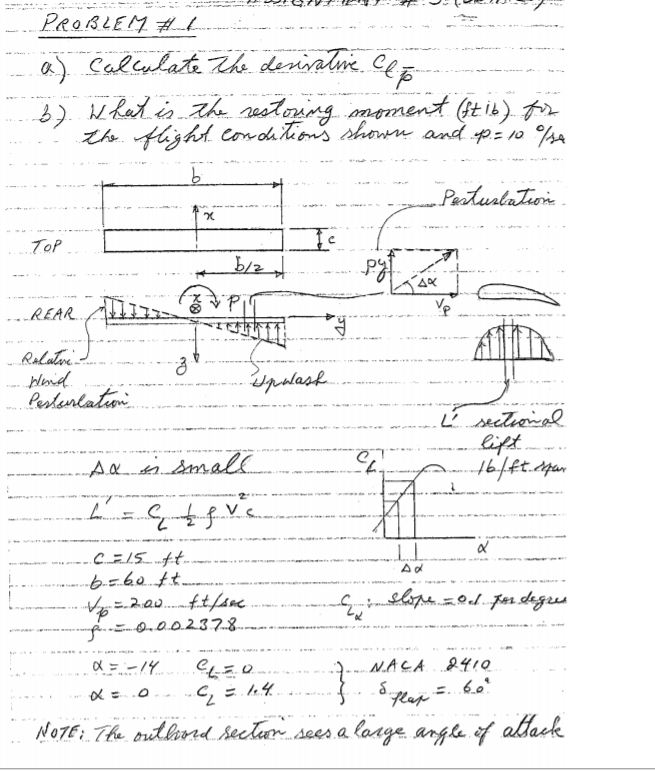 PROBLEM # 1
a) Calculate the derivative Clp̄
b) What is the restoring moment (ft lb) for
the flight conditions shown and p = 10 °/se
b
x
Perturbation
TOP
c
b/2
py
Δα
Vp
REAR
x
p
y
z
Relative
Wind
Perturbation
Upwash
L' sectional
lift
lb/ft span
Δα is small
CL
L' = CL ½ ρ V² c
α
Δα
c = 15 ft
b = 60 ft
Vp = 200 ft/sec
CLα : slope = 0.1 per degree
ρ = 0.002378
α = -14 CL = 0 } NACA 2410
α = 0 CL = 1.4 } δflap = 60°
NOTE: The outboard section sees a large angle of attack